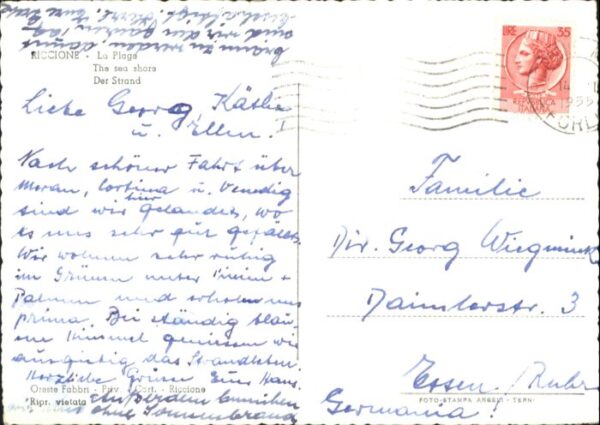 RICCIONE - La Plage
The sea shore
Der Strand
Liebe Georg, Käthe
u. Ellen!
Nach schöner Fahrt über
Meran, Cortina u. Venedig
sind wir hier gelandet, wo
es uns sehr gut gefällt.
Wir wohnen sehr ruhig
im Grünen unter Pinien +
Palmen und erholen uns
prima. Bei ständig blau-
em Himmel geniessen wir
ausgiebig das Strandleben.
Herzliche Grüsse Eure Hans.
Oreste Fabbri - Priv. Cart. - Riccione
Ripr. vietata
Außerdem
ohne Sonnenbrand
braun zu werden, damit
sind wir den ganzen Tag
beschäftigt.
LIRE 35
REPUBBLICA
ITALIANA
14
1955
FORLI
Familie
Dir. Georg Wiegmink
Daimlerstr. 3
Essen/Ruhr
Germania!
FOTO-STAMPA ANGELI - TERNI